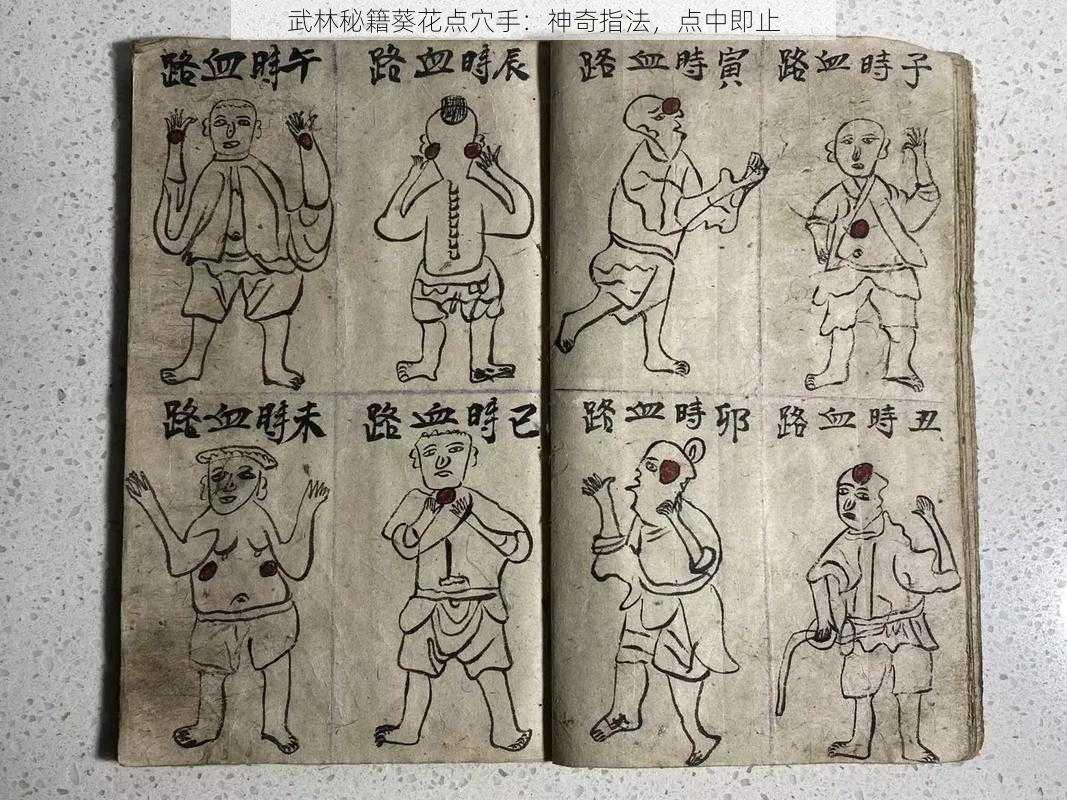 武林秘籍葵花点穴手：神奇指法，点中即止
子時血路
丑時血路
寅時血路
卯時血路
辰時血路
巳時血路
午時血路
未時血路